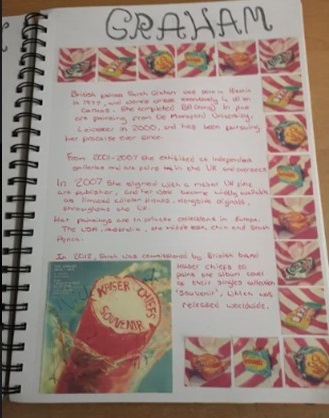 GRAHAM
British painter Sarah Graham was born in Hitchin
in 1977, and works almost exclusively in oil on
canvas. She completed BA (Hons) in fine
art painting from De Montfort University,
Leicester in 2000, and has been pursuing
her practise ever since.
From 2001-2007 she exhibited at independent
galleries and art fairs in the UK and overseas
In 2007 she aligned with a market UK fine
art publisher, and her work became widely available
as limited edition prints, alongside originals,
throughout the UK.
Her paintings are in private collections in Europe,
The USA, Australia, the middle east, china and South
Africa.
In 2012, Sarah was commissioned by British band
Kaiser Chiefs to
paint the album cover
to their singles collection
'Souvenir', which was
released worldwide.
KAISER CHIEFS
SOUVENIR